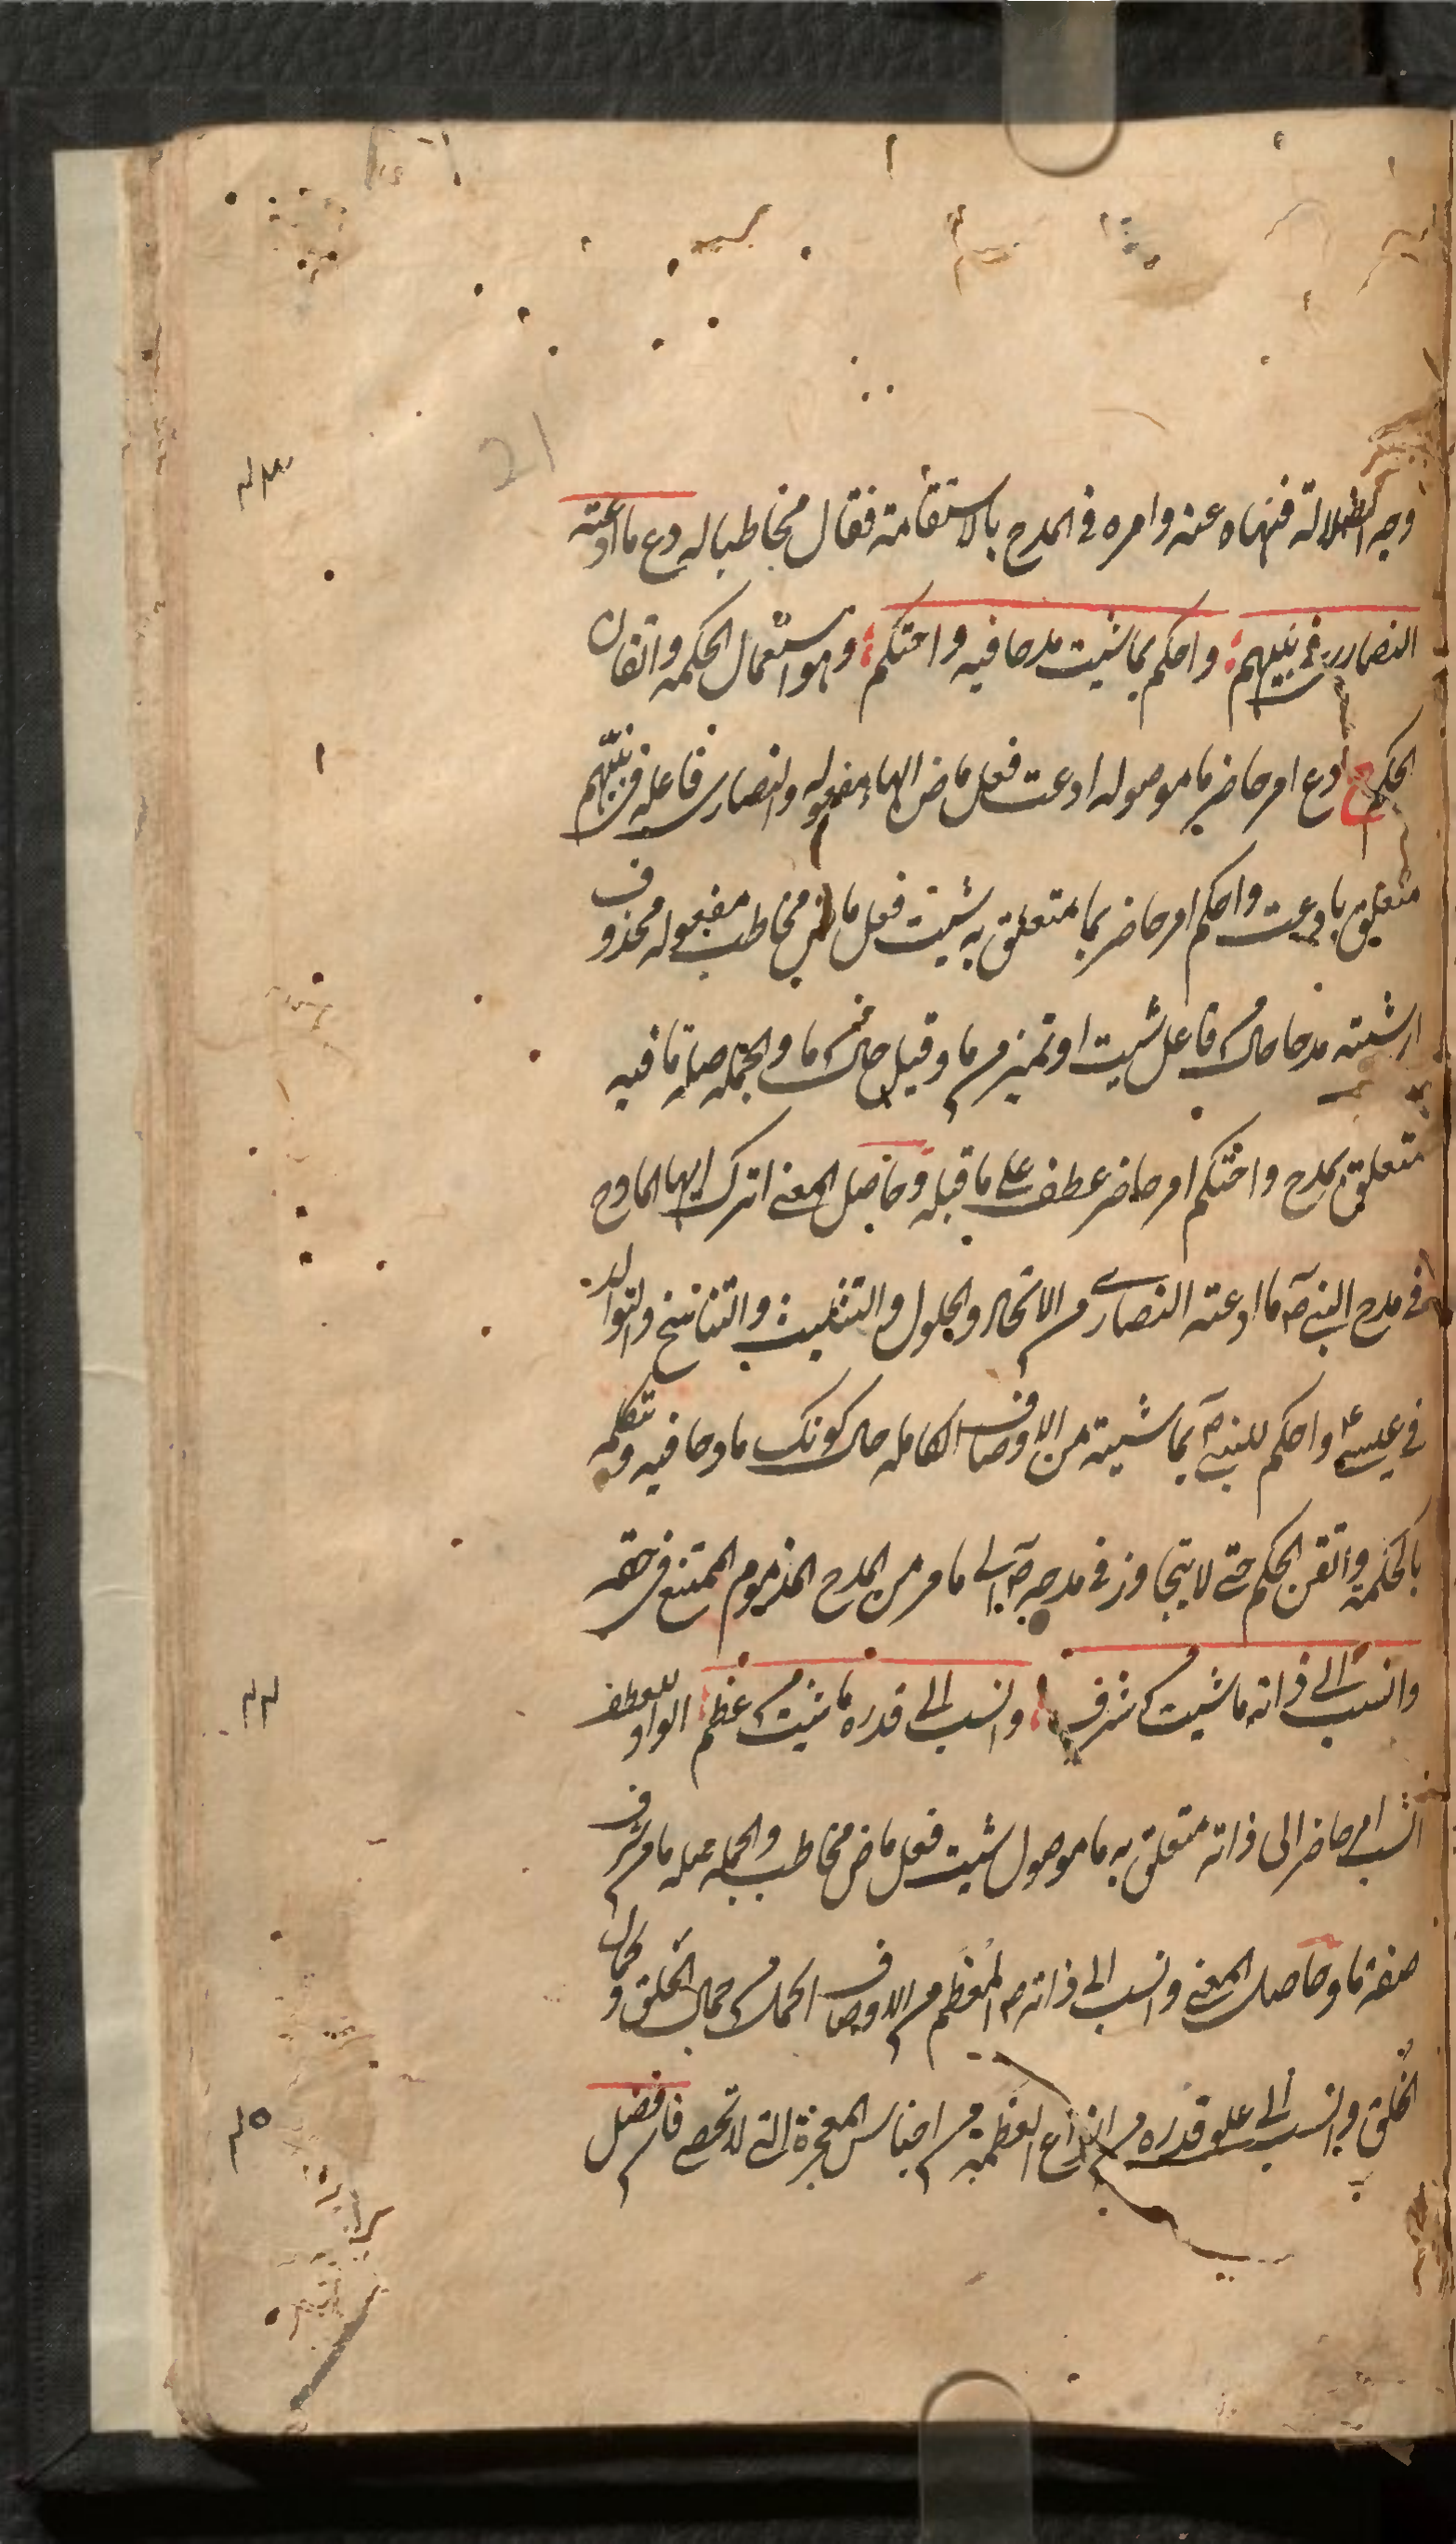 21
وجه الضلالة فنهاه عنه وامره فى المدح بالاستقامة فقال مخاطبا له دع ما ادعته
٤٣
النصارى فى نبيهم واحكم بما شئت مدحا فيه واحتكم وهو استعمال الحكمه واتقان
الحكم دع امر حاضر ما موصوله ادعت فعل ماض الهاء مفعوله والنصارى فاعله فى نبيهم
متعلق بادعت واحكم امر حاضر بما متعلق به شئت فعل ماض مخاطب مفعوله محذوف
اى شئته مدحا حال من فاعل شئت او تميز من ما وقيل حال من ما والجمله صلة ما فيه
متعلق بمدح واحتكم امر حاضر عطف على ما قبله وحاصل المعنى اترك ايها المادح
فى مدح النبى ص ما ادعته النصارى من الاتحاد والحلول والتثليث والتناسخ والتوالد
فى عيسى ع واحكم للنبى ص بما شئته من الاوصاف الكامله حال كونك مادحا فيه وتكلم
بالحكمة واتقن الحكم حتى لا يتجاوز فى مدحه ص الى ما مر من المدح المذموم الممتنع فى حقه
وانسب الى ذاته ما شئت من شرف وانسب الى قدره ما شئت من عظم الواو للعطف
٤٤
انسب امر حاضر الى ذاته متعلق به ما موصول شئت فعل ماض مخاطب والجمله صله ما من شرف
صفة ما وحاصل المعنى وانسب الى ذاته ص المعظم من الاوصاف الكمال من جمال الخَلق وكمال
الخُلق وانسب الى علو قدره من انواع العظمة من اجناس المعجزة التى لا تحصى فان فضل
٤٥